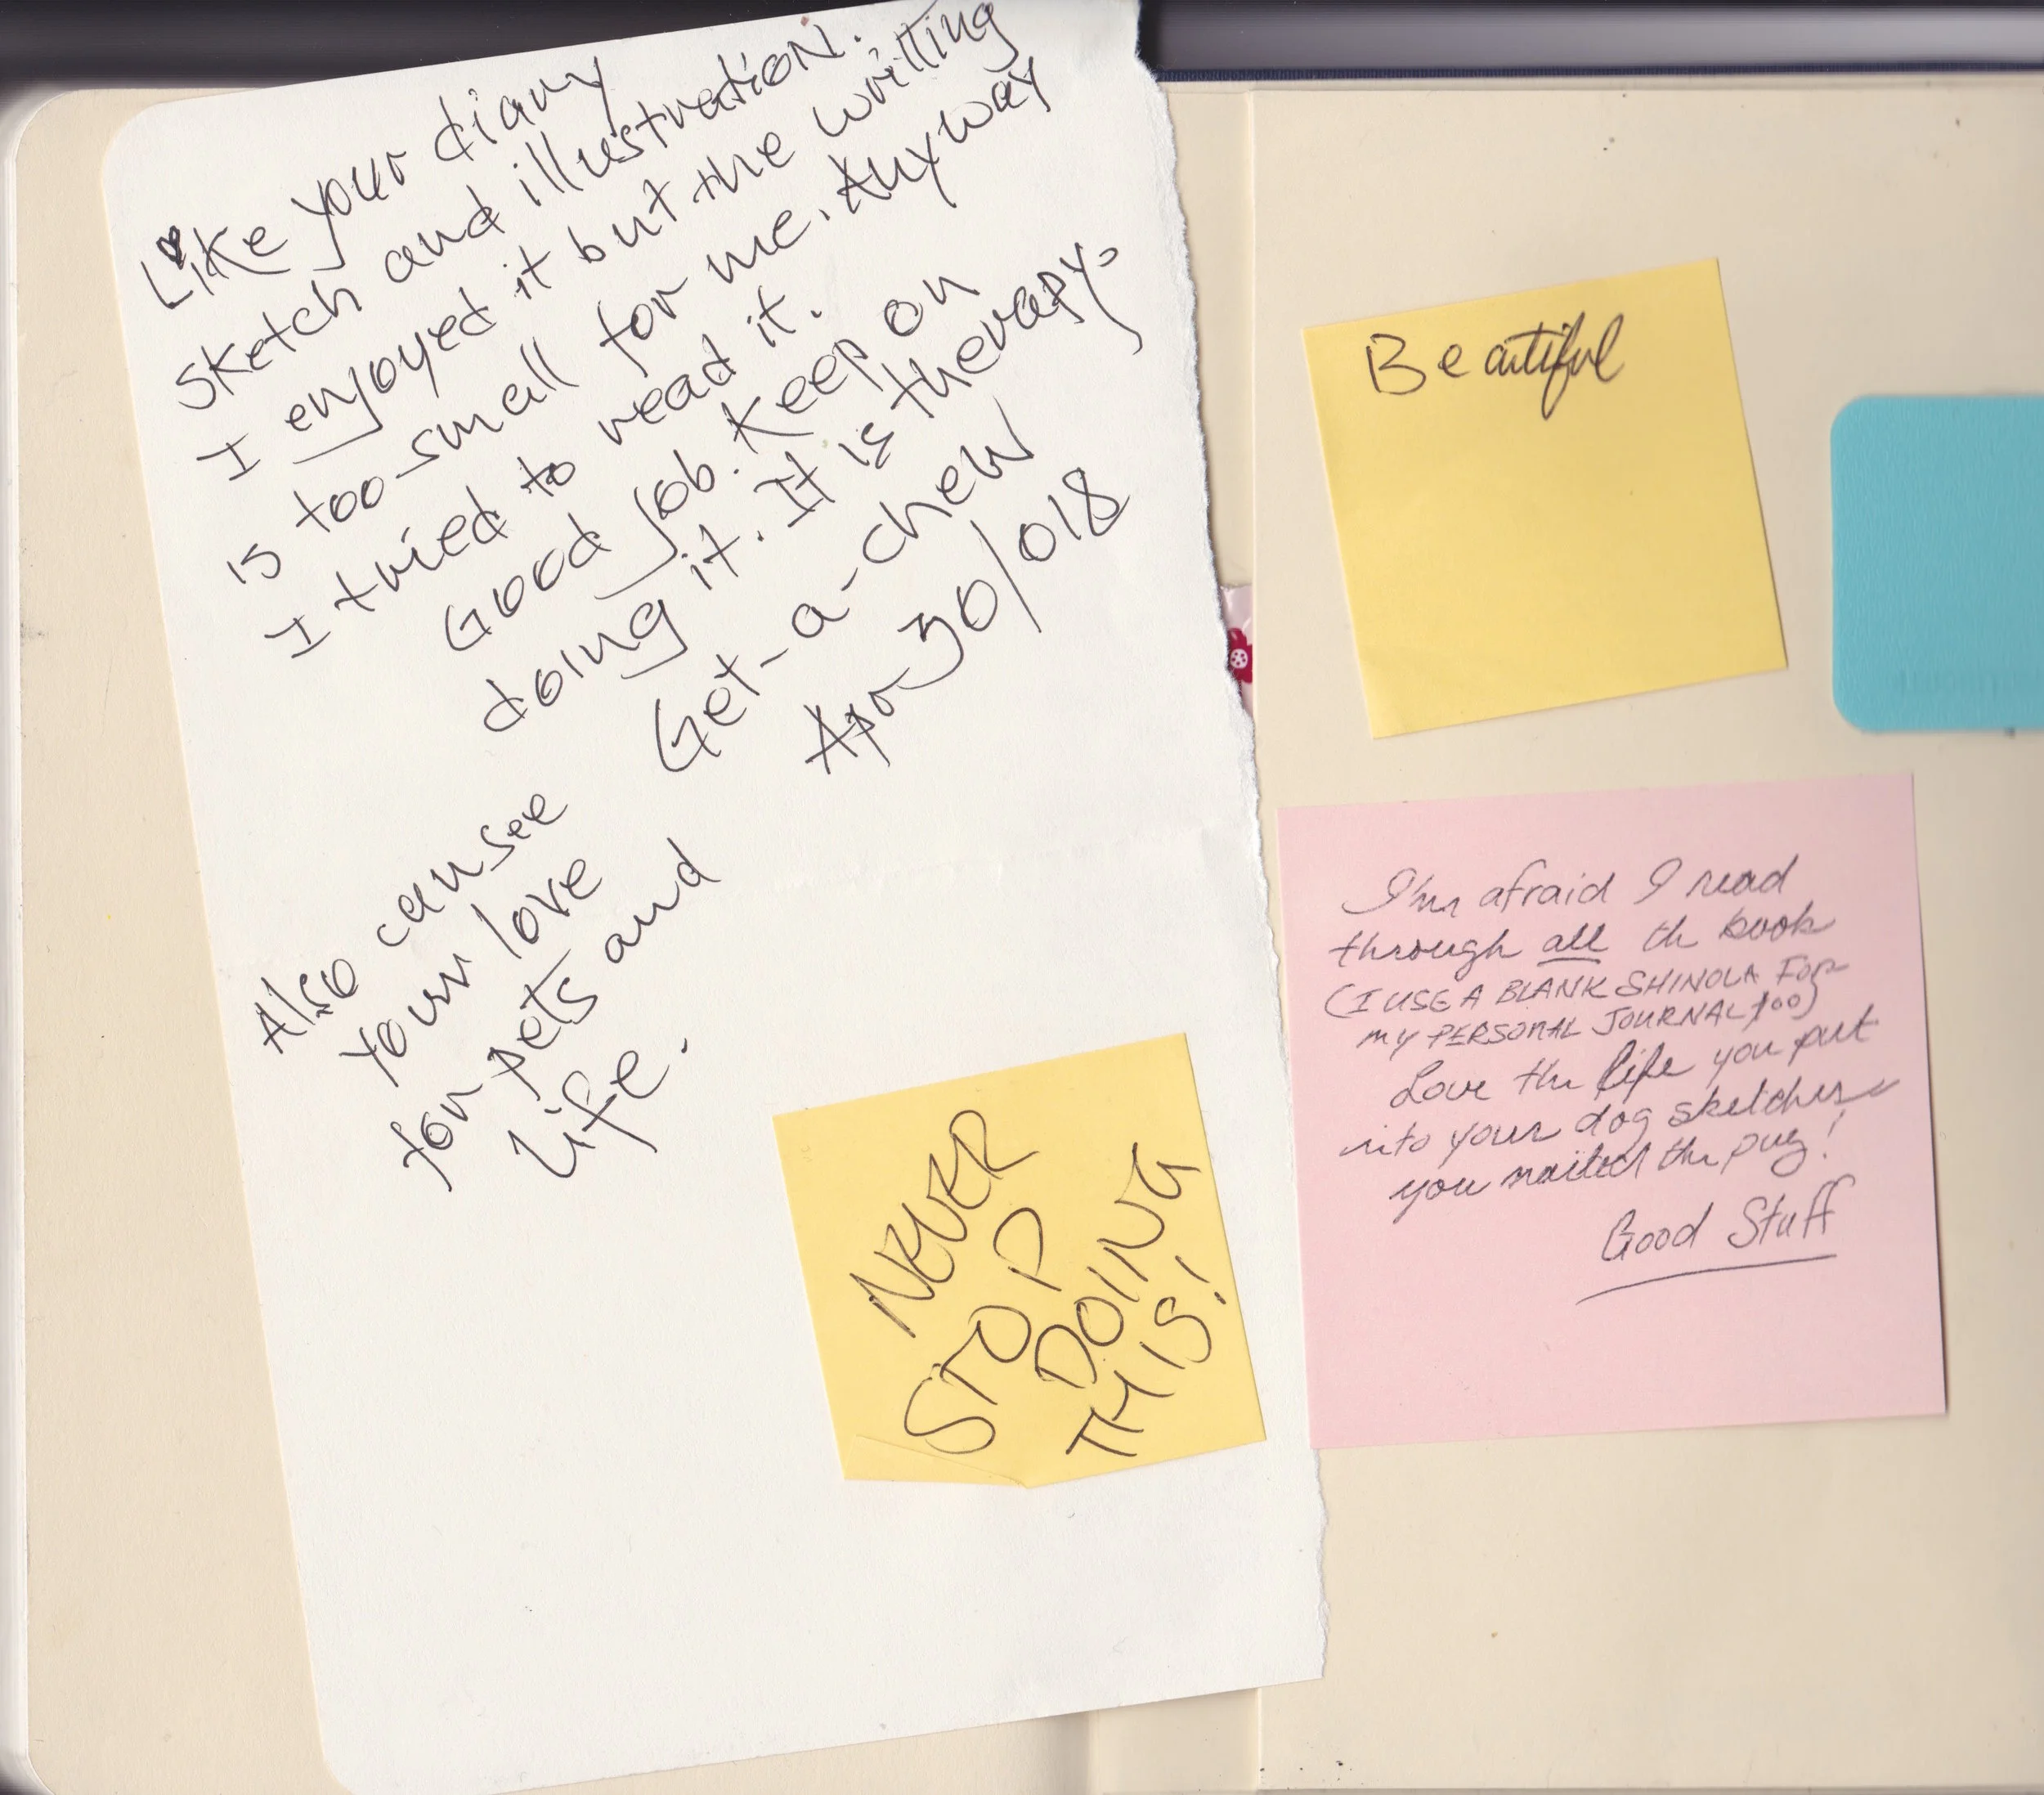 Like your diary
sketch and illustration.
I enjoyed it but the writting
is too small for me. Anyway
I tried to read it.
Good Job. Keep on
doing it. It is therapy.
Get-a-chew
Apr 30/018
Also can see
your love
for pets and
Life.
NEVER
STOP
DOING
THIS!
Beautiful
I'm afraid I read
through all the book
(I USE A BLANK SHINOLA FOR
MY PERSONAL JOURNAL too)
Love the life you put
into your dog sketches
you nailed the pug!
Good Stuff